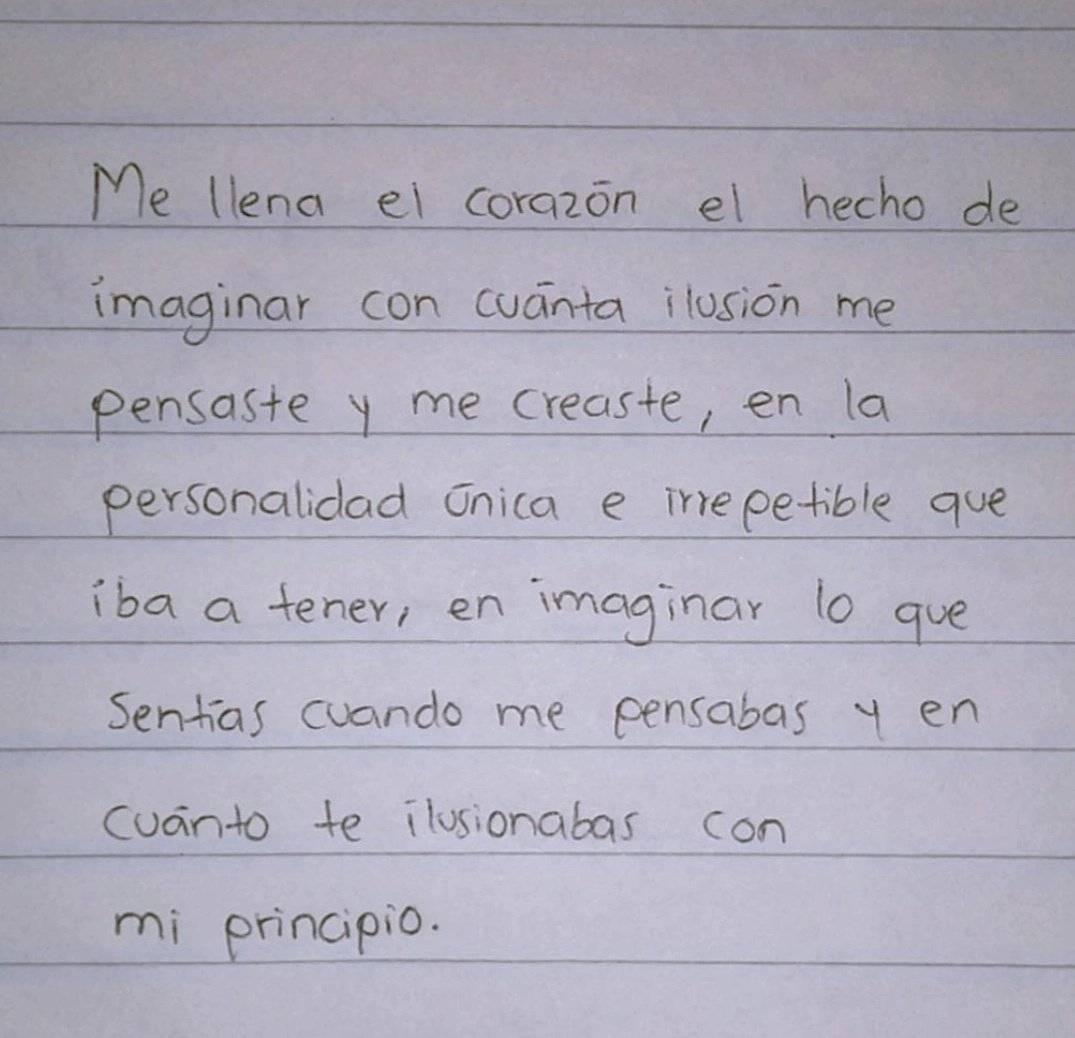 Me llena el corazón el hecho de
imaginar con cuánta ilusión me
pensaste y me creaste, en la
personalidad única e irrepetible que
iba a tener, en imaginar lo que
Sentías cuando me pensabas y en
cuánto te ilusionabas con
mi principio.